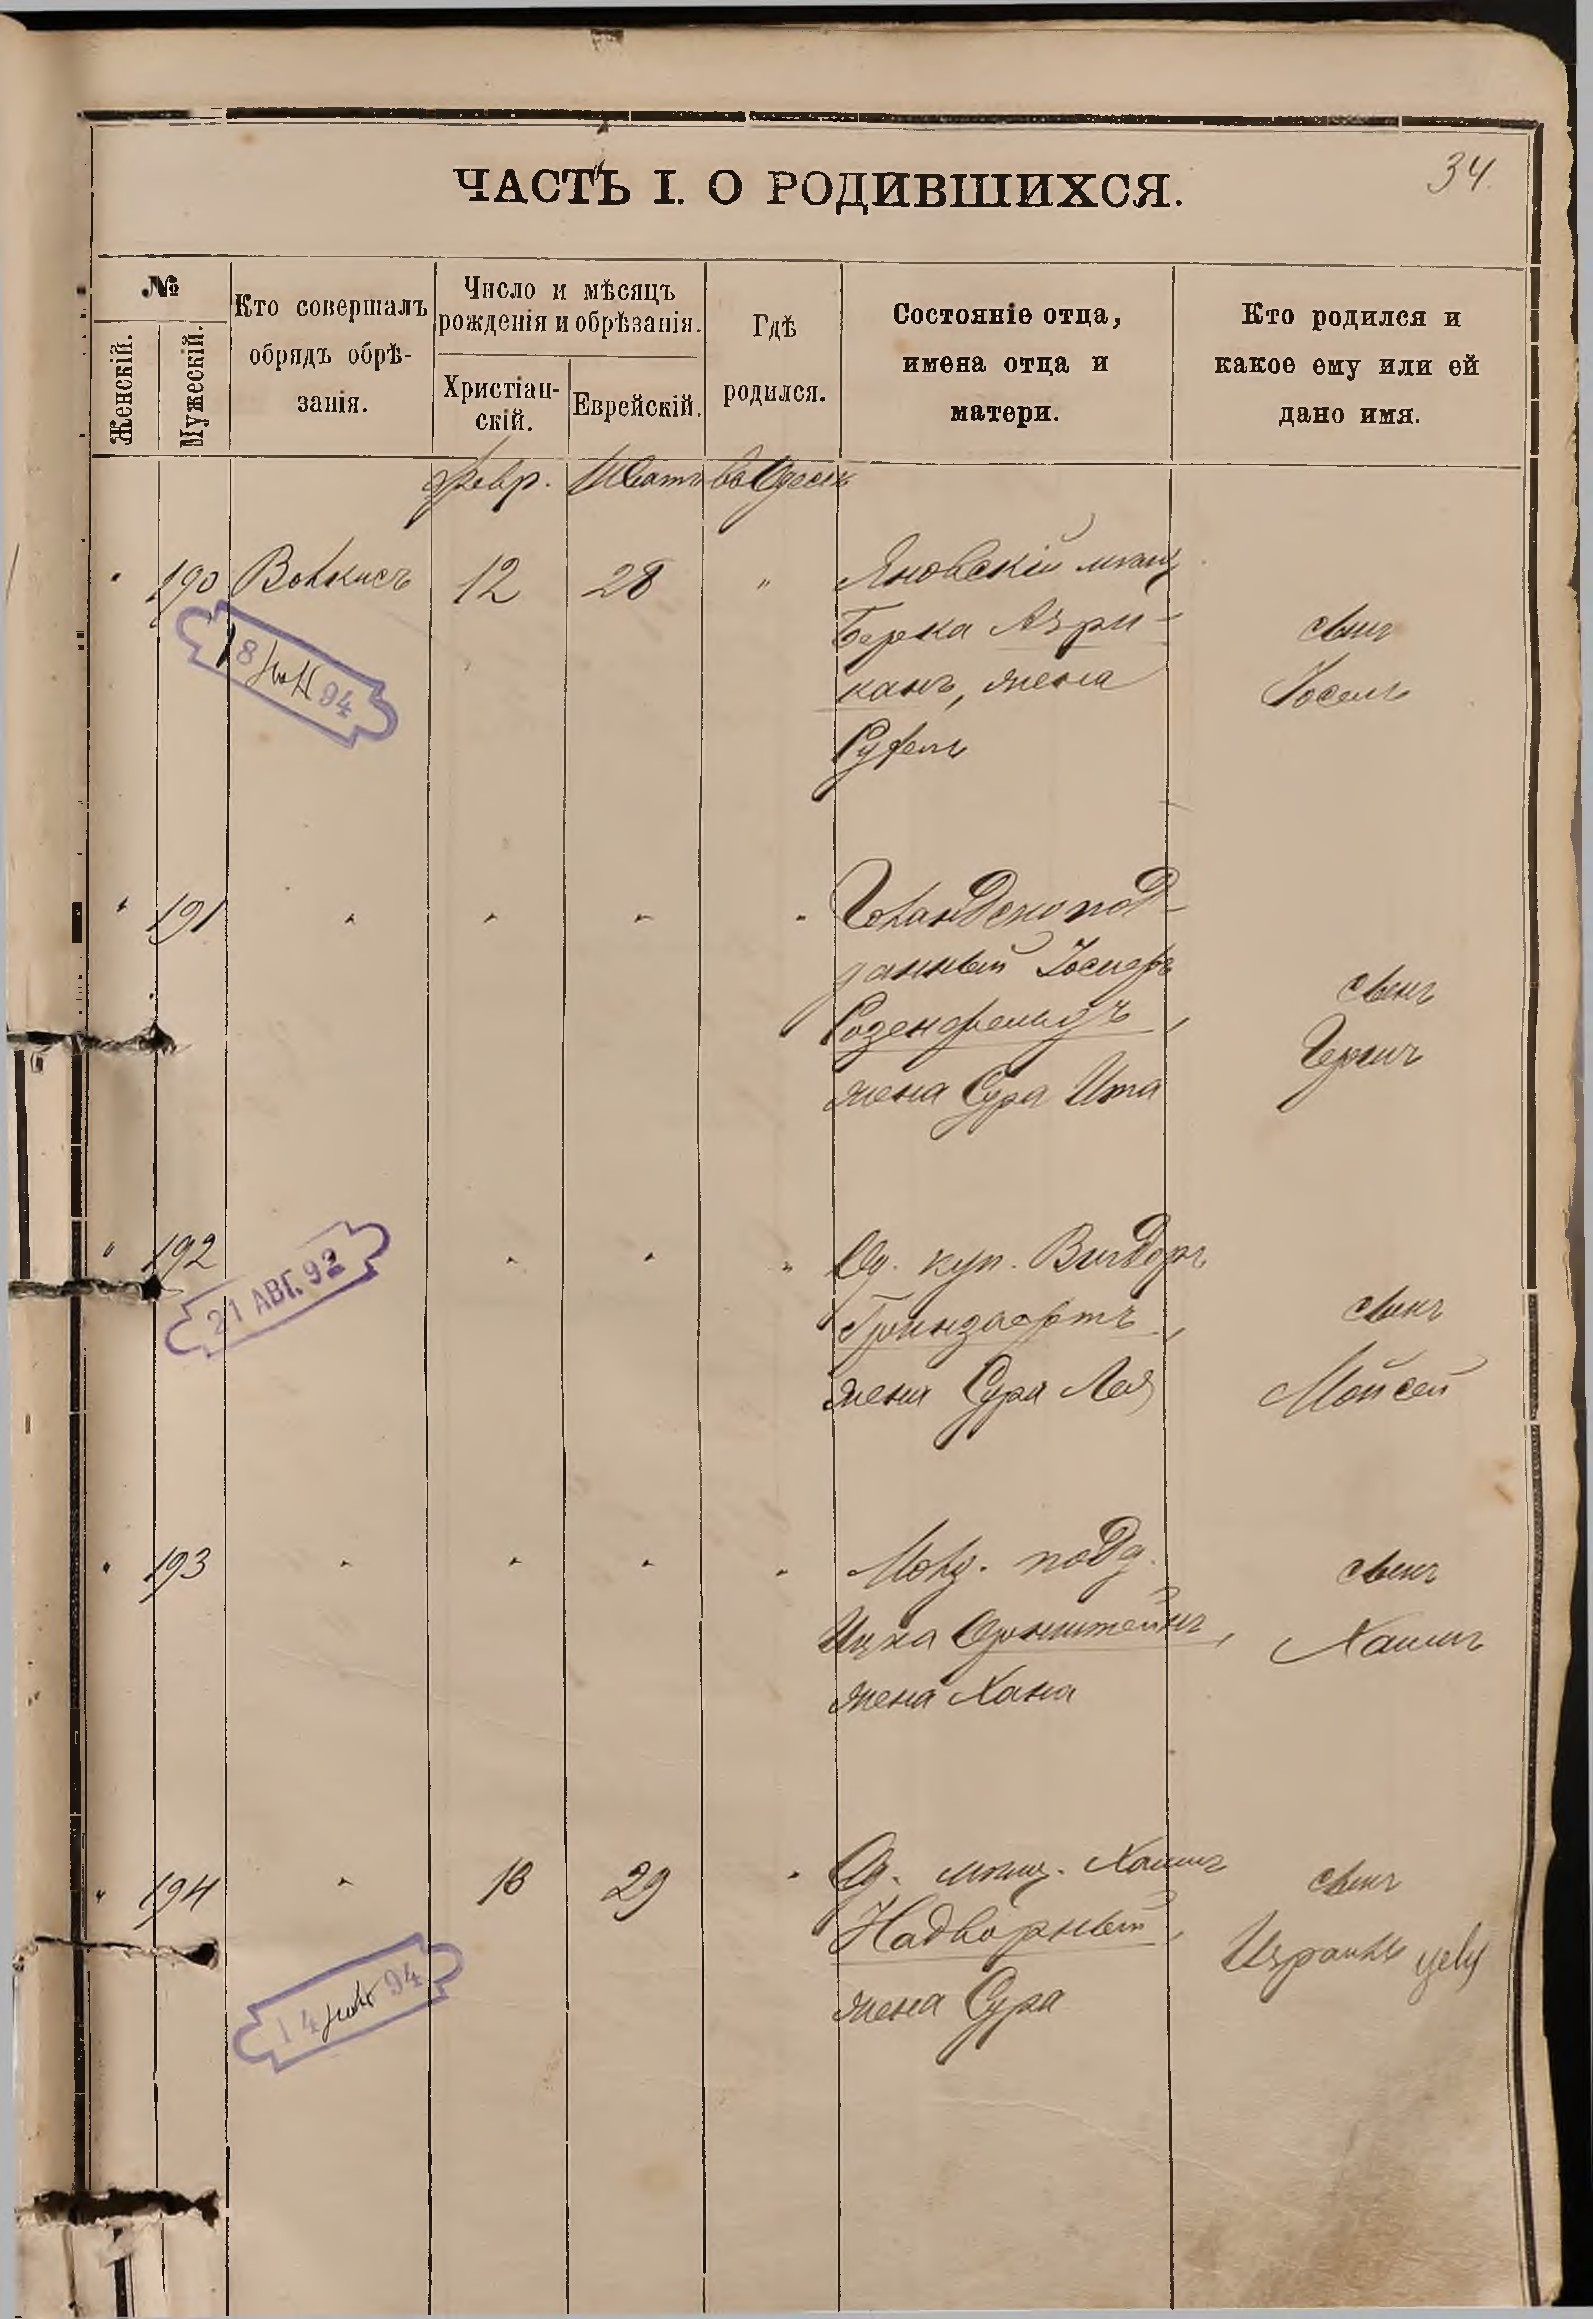 34.
ЧАСТЬ I. О РОДИВШИХСЯ.
№
Женскій.
Мужескій.
Кто совершалъ
обрядъ обрѣ-
занія.
Число и мѣсяцъ
рожденія и обрѣзанія.
Христіан-
скій.
Еврейскій.
Гдѣ
родился.
Состояніе отца,
имена отца и
матери.
Кто родился и
какое ему или ей
дано имя.
Февр. Шватъ въ Одессѣ
" 190 Волкисъ 12 28 " Яновскій мѣщ.
Берка Азри-
канъ, жена
Руфель
сынъ
Іосель
18 94
" 191 " " " " Голландскопод-
данный Іосифъ
Розенфельдъ,
жена Сура Ита
сынъ
Герман
" 192 " " " Од. куп. Вигдоръ
Гринзафтъ,
жена Сура Лея
сынъ
Мойсей
21 АВГ. 92
" 193 " " " " Молд. подд.
Ицка Оренштейнъ,
жена Хана
сынъ
Хаимъ
" 194 " 13 29 " Од. мѣщ. Хаимъ
Надворный,
жена Сура
сынъ
Израиль
14 94